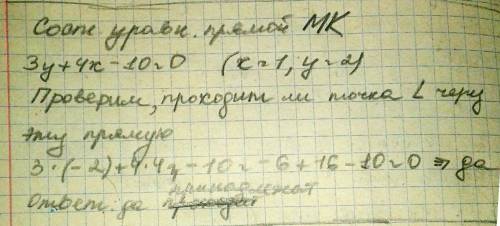 Сост уравн. прямой МК
3y+4x-10=0 (x=1, y=2)
Проверим, проходит ли точка L через
эту прямую
3·(-2)+4·4 -10= -6+16-10=0 => да
принадлежат
Ответ: да проходит